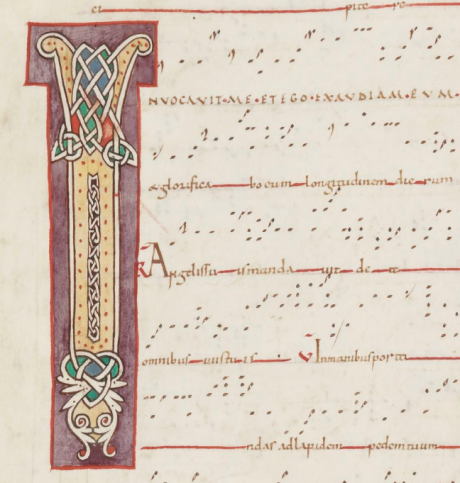 pite re
INVOCAVIT·ME·ET EGO·EXAVDIAM·EVM·
& glorifica bo eum longitudinem die rum
R Angelis su is manda uit de te
omnibus uiis tu is V In manibus porta
ndas ad lapidem pedem tuum